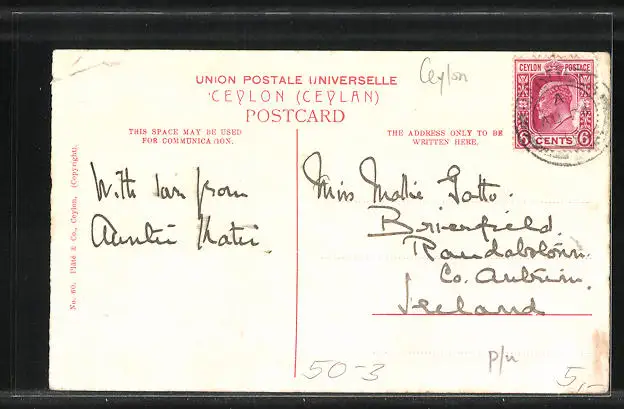 Ceylon
CEYLON POSTAGE
6 CENTS 6
UNION POSTALE UNIVERSELLE
CEYLON (CEYLAN)
POSTCARD
THIS SPACE MAY BE USED
FOR COMMUNICATION.
THE ADDRESS ONLY TO BE
WRITTEN HERE.
With luv from
Auntie Katie.
Miss Mollie Gatto.
Brierfield.
Randalstown.
Co. Antrim.
Ireland
No. 60. Plâté & Co., Ceylon, (Copyright).
50-3
p/u
5,-